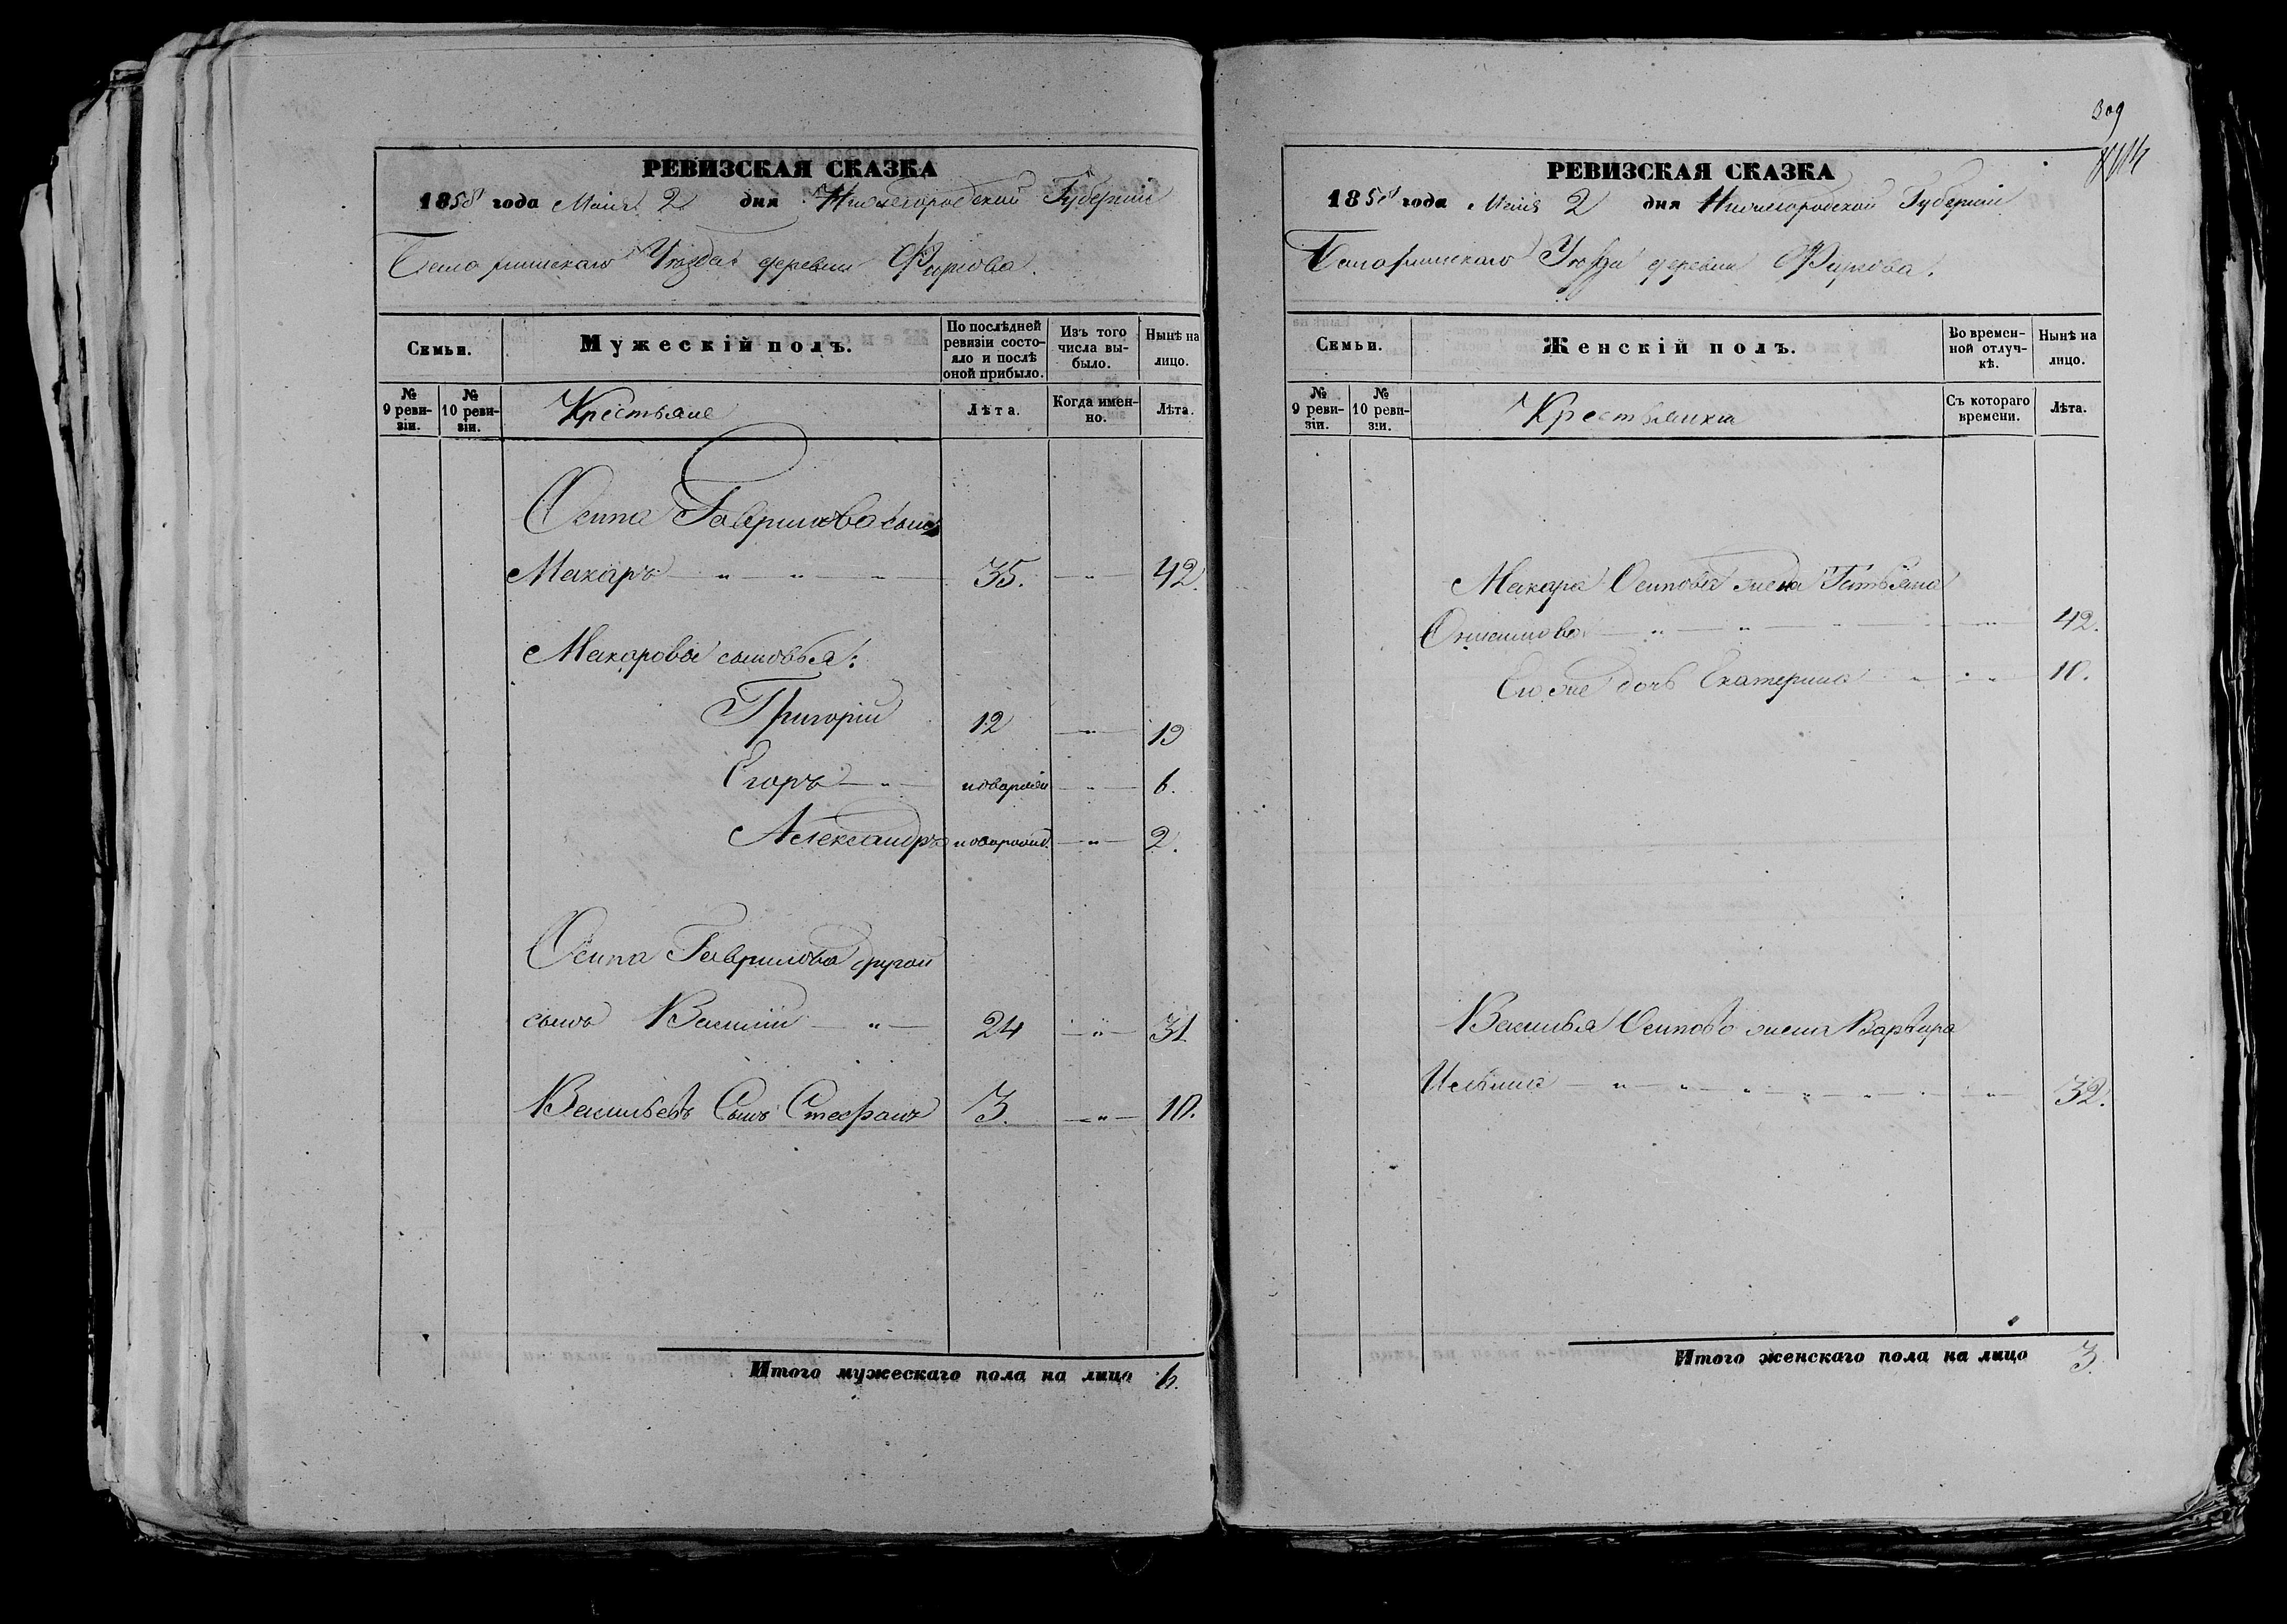 РЕВИЗСКАЯ СКАЗКА
1858 года Маія 2 дня Нижегородской Губерніи
Балахнинскаго Уѣзда деревни Фуркова.
Семьи.
Мужескій полъ.
По послѣдней ревизіи состояло и послѣ оной прибыло.
Изъ того числа выбыло.
Нынѣ на лицо.
№ 9 ревизіи.
№ 10 ревизіи.
Крестьяне
Лѣта.
Когда именно.
Лѣта.
Осипа Гаврилова сынъ
Макаръ — " — " — " — 35. — " — 42.
Макаровы сыновья:
Григорій 12 — " — 19
Егоръ — " — новорожд — " — 6.
Александръ новорожд. — " — 2.
Осипа Гаврилова другой
сынъ Василій — " — 24 — " — 31.
Васильевъ Сынъ Стефанъ 3. — " — 10.
Итого мужескаго пола на лицо 6.
309
РЕВИЗСКАЯ СКАЗКА
1858 года Маія 2 дня Нижегородской Губерніи
Балахнинскаго Уѣзда деревни Фуркова.
Семьи.
Женскій полъ.
Во временной отлучкѣ.
Нынѣ на лицо.
№ 9 ревизіи.
№ 10 ревизіи.
Крестьянки
Съ котораго времени.
Лѣта.
Макара Осипова жена Татьяна
— " — " — " — " — 42.
Его же дочь Екатерина — " — " — 10.
Василья Осипова жена Варвара
Ильина — " — " — " — " — " — " — 32.
Итого женскаго пола на лицо 3.